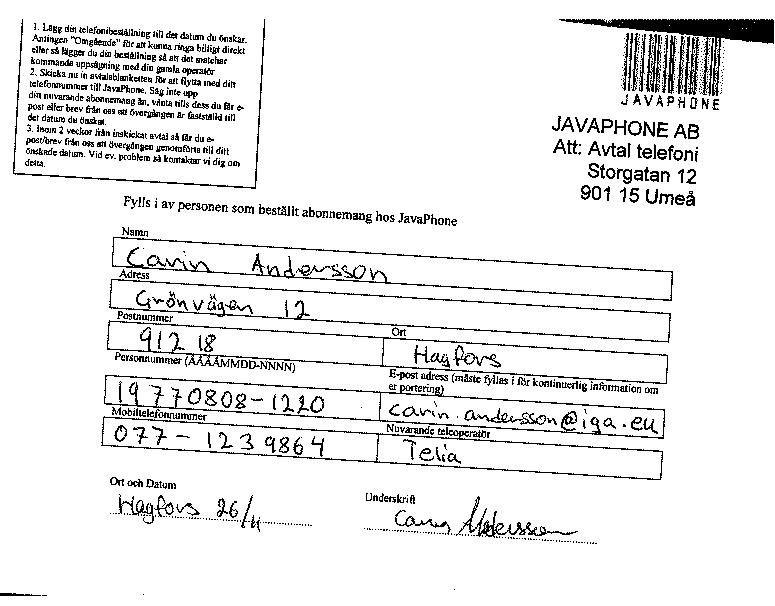 1. Lägg din telefonibeställning till det datum du önskar.
Antingen "Omgående" för att kunna ringa billigt direkt
eller så lägger du din beställning så att det matchar
kommande uppsägning med din gamla operatör
2. Skicka nu in avtalsblanketten för att flytta med ditt
telefonnummer till JavaPhone. Säg inte upp
din nuvarande abonnemang än, vänta tills dess du får e-
post eller brev från oss att övergången är fastställd till
det datum du önskat.
3. Inom 2 veckor från inskickat avtal så får du e-
post/brev från oss att övergången genomförts till ditt
önskade datum. Vid ev. problem så kontaktar vi dig om
detta.
JAVAPHONE
JAVAPHONE AB
Att: Avtal telefoni
Storgatan 12
901 15 Umeå
Fylls i av personen som beställt abonnemang hos JavaPhone
Namn
Carin Andersson
Adress
Grönvägen 12
Postnummer
912 18
Ort
Hagfors
Personnummer (ÅÅÅÅMMDD-NNNN)
19770808-1220
E-post adress (måste fyllas i för kontinuerlig information om
er portering)
carin.andersson@iga.eu
Mobiltelefonnummer
077-1239864
Nuvarande teleoperatör
Telia
Ort och Datum
Hagfors 26/11
Underskrift
Carin Andersson